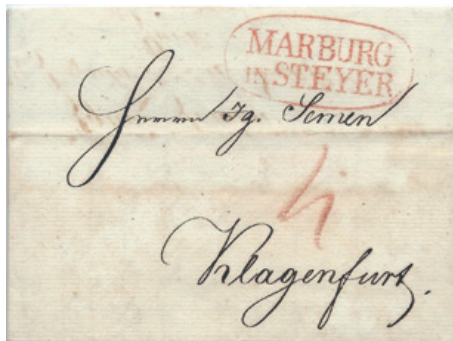 MARBURG
IN STEYER
Herrn Ig. Semen
4
Klagenfurt.